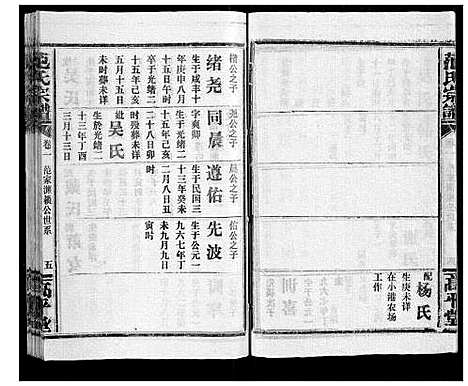 范氏宗譜
高平堂
配 杨氏
生庚未详
在小港农场
工作
楷公之子
绪尧
生于咸丰十
年庚申八月
十五日午时
卒于光绪二
十五年己亥
五月十五日
未时葬未详
尧公之子
同晨
字爽卿
生于光绪二
十八日卯
时殁葬未详
娶吴氏
生於光绪二
十三年丁酉
三月十三日
晨公之子
遵佑
生于民国三
十三年癸未
二月八日丑
时
佑公之子
先波
生于公元一
九六七年丁
未九月九日
寅时
范氏宗譜
卷一
范家渊
公世系
五
高平堂